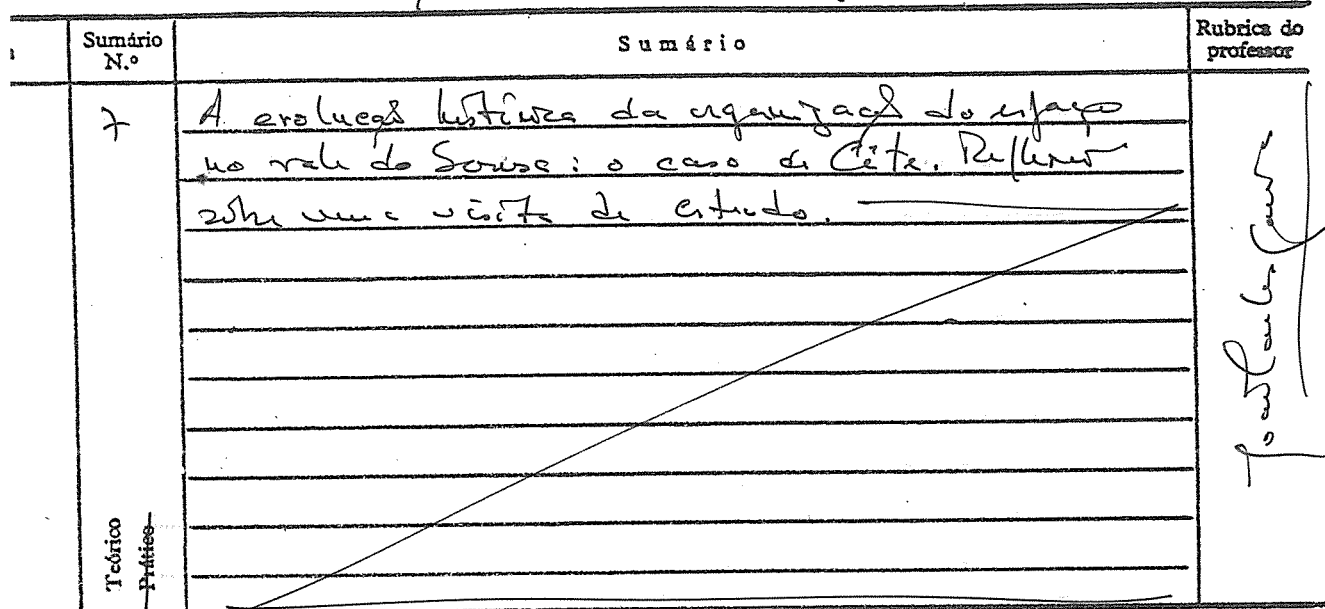 Sumário N.º
Sumário
Rubrica do professor
7
A evolução histórica da organização do espaço
no vale do Sousa: o caso de Cête. Reflexão
sobre uma visita de estudo.
Teórico
Prático